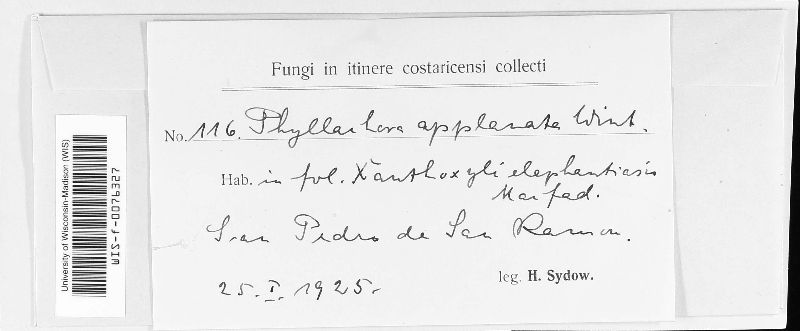 Fungi in itinere costaricensi collecti
No. 116. Phyllachora applanata Wint.
Hab. in fol. Xanthoxyli elephantiasis
Macfad.
San Pedro de San Ramon.
25. I. 1925.
leg. H. Sydow.
University of Wisconsin-Madison (WIS)
WIS-f-0076327